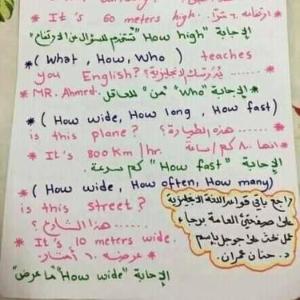 * It's 60 meters high. ارتفاعه ٦٠ متراً
الإجابة "How high" تستخدم للسؤال عن الارتفاع
* (What, How, Who) teaches
you English? ...... يُدرسك الإنجليزية؟
* MR. Ahmed. الإجابة "Who" "من" للعاقل
* (How wide, How long, How fast)
is this plane? ...... هذه الطائرة؟
* It's 800 Km/hr. انها ٨٠٠ كم/ساعة
الإجابة "How fast" كم سرعة.
* (How wide, How often, How many)
is this street? ...... هذا الشارع؟
* It's 10 meters wide. عرضه ١٠ أمتار
الإجابة "How wide" "ما عرض"
راجع باقي قواعد اللغة الإنجليزية
على صفحتي العامة برجاء
عمل بحث على جوجل باسم
د. حنان عمران.